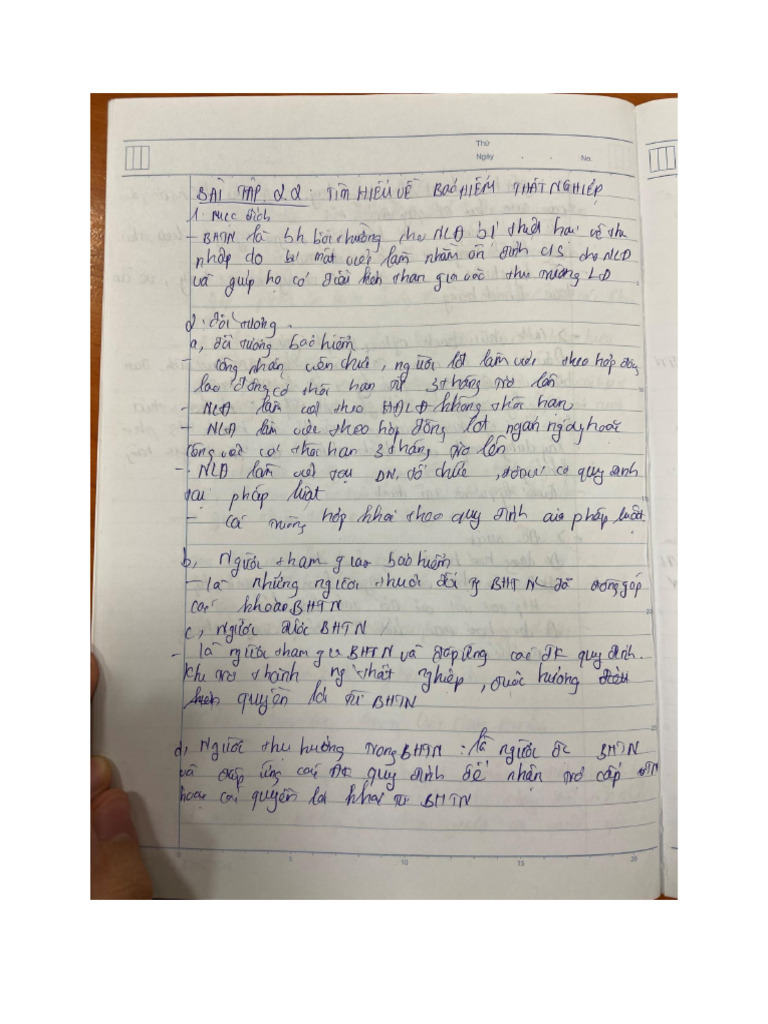 Thứ
Ngày . . No.
BÀI TẬP 2.2 : TÌM HIỂU VỀ BẢO HIỂM THẤT NGHIỆP
1. Mục đích
- BHTN là bh bồi thường cho NLĐ bị thiệt hại về thu
nhập do bị mất việc làm nhằm ổn định c/s cho NLĐ
và giúp họ có điều kiện tham gia vào thị trường LĐ
2. Đối tượng.
a, đối tượng bảo hiểm
- Công nhân viên chức, người lđt làm việc theo hợp đồng
lao động có thời hạn từ 3 tháng trở lên
- NLĐ làm việc theo HĐLĐ không thời hạn
- NLĐ làm việc theo hợp đồng lđt ngắn ngày hoặc
công việc có thời hạn 3 tháng trở lên
- NLĐ làm việc tại DN, tổ chức, được quy định
tại pháp luật
- Các trường hợp khác theo quy định của pháp luật
b, Người tham gia bảo hiểm
- là những người thuộc đối tg BHTN đã đóng góp
các khoản BHTN
c, Người được BHTN
- là người tham gia BHTN và đáp ứng các đk quy định
khi trở thành ng thất nghiệp, được hưởng
quyền lợi từ BHTN
d, Người thụ hưởng trong BHTN : là người đc BHTN
và đáp ứng các đk quy định để nhận trợ cấp TN
hoặc các quyền lợi khác từ BHTN
0 5 10 15 20